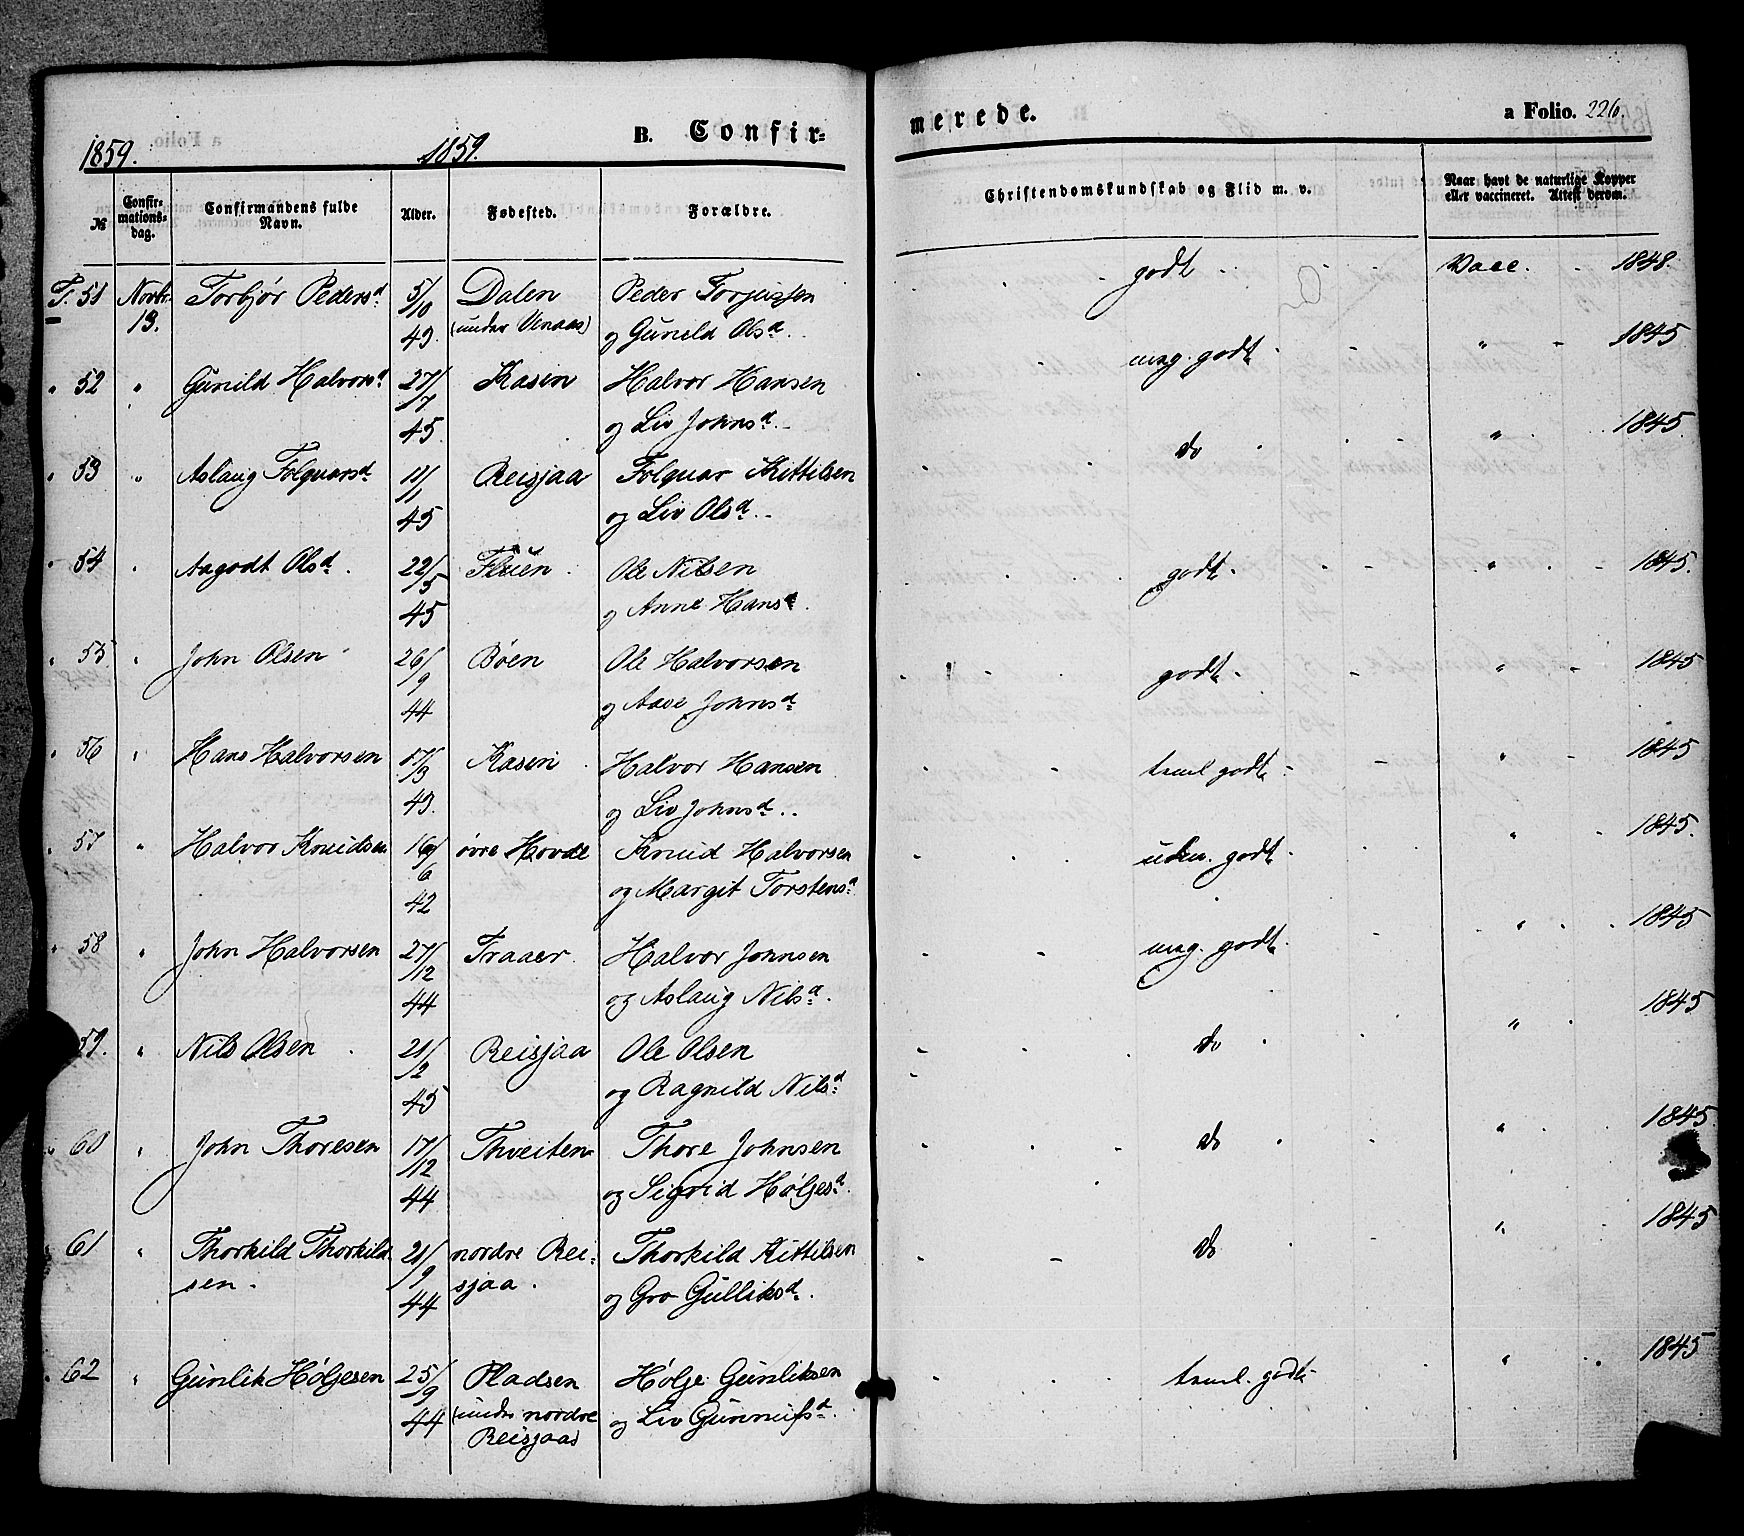 1859. 1859. B. Confir- merede. a Folio. 226.
№ Confir-mations-dag. Confirmandens fulde Navn. Alder. Fødested. Forældre. Christendomskundskab og Flid m. v. Naar havt de naturlige Kopper eller vaccineret. Attest derom.
T. 51 Novbr. Torbjør Pedersd. 5/10 Dalen Peder Torjussen godt Vacc. 1848.
13. 43. (under Venaas) og Gunild Olsd.
" 52 " Gunild Halvorsd. 27/7 Kasin Halvor Hansen meg. godt " 1845
45. og Liv Johnsd.
" 53 " Aslaug Folquarsd. 11/1 Reisjaa Folquar Kittilsen do " 1845.
45 og Liv Olsd.
" 54 " Aagodt Olsd. 22/5 Fluen Ole Nilsen godt " 1845.
45 og Anne Hansd.
" 55 " John Olsen 26/9 Bøen Ole Halvorsen godt " 1845
44 og Aase Johnsd.
" 56 " Hans Halvorsen 17/3 Kasin Halvor Hansen teml godt " 1845
43. og Liv Johnsd.
" 57 " Halvor Knudsen 16/6 øvre Hovde Knud Halvorsen godt " 1845.
42 og Margit Torstensd.
" 58 " John Halvorsen 27/12 Traaer Halvor Johnsen meg. godt " 1845
44 og Aslaug Nilsd.
59. " Nils Olsen 21/2 Reisjaa Ole Olsen do " 1845
45 og Ragnild Nilsd.
" 60 " John Thoresen 17/12 Thveiten Thore Johnsen do " 1845.
44 og Sigrid Høljesd.
" 61 " Thorkild Thorkild 21/9 nordre Rei- Thorkild Kittilsen do " 1845
sen. 44 sjaa. og Gro Gulliksd.
" 62 " Gunlik Høljesen 25/9 Pladsen Hølje Gunliksen teml. godt " 1845
44 (under nordre og Liv Gunnufsd.
Reisjaa)